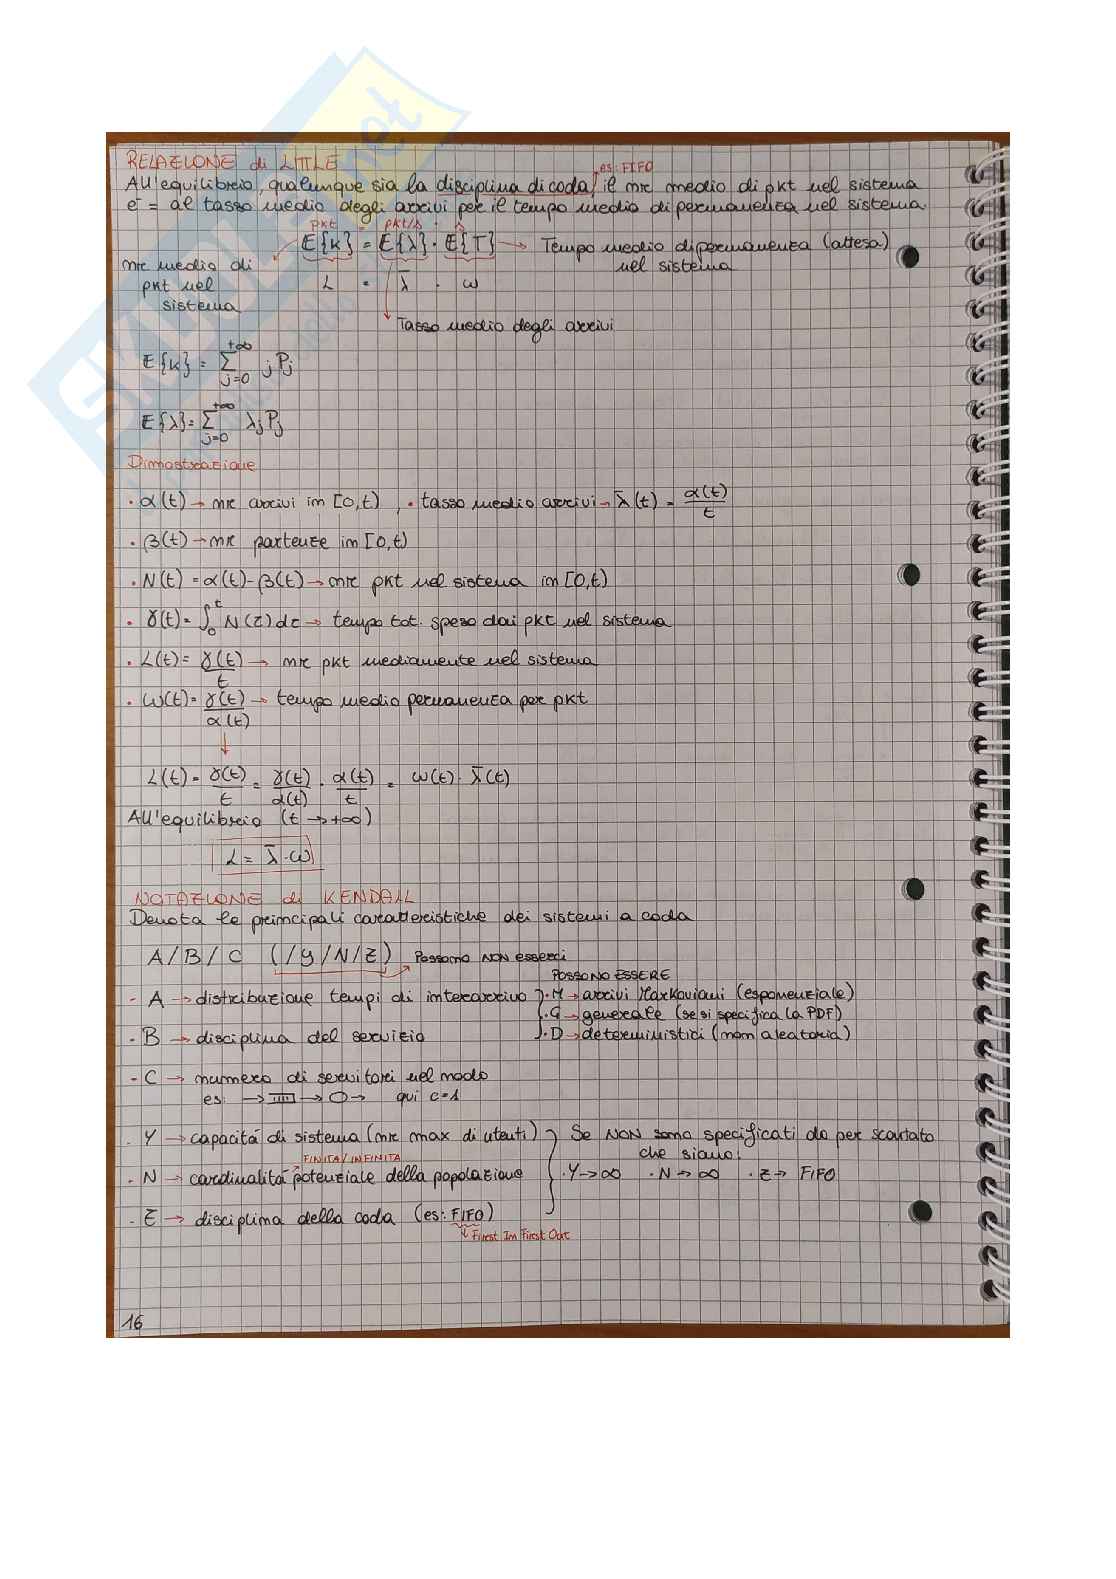 RELAZIONE di LITTLE
es: FIFO
All'equilibrio, qualunque sia la disciplina di coda, il nr medio di pkt nel sistema
è = al tasso medio degli arrivi per il tempo medio di permanenza nel sistema
pkt pkt/s s
E{k} = E{λ} · E{T} → Tempo medio di permanenza (attesa) nel sistema
nr medio di pkt nel sistema
L = λ̄ · W
Tasso medio degli arrivi
E{k} = Σ_{j=0}^{+∞} j Pj
E{λ} = Σ_{j=0}^{+∞} λj Pj
Dimostrazione
· α(t) → nr arrivi in [0,t) , · tasso medio arrivi → λ̄(t) = α(t)/t
· β(t) → nr partenze in [0,t)
· N(t) = α(t) - β(t) → nr pkt nel sistema in [0,t)
· γ(t) = ∫_0^t N(τ) dτ → tempo tot. speso dai pkt nel sistema
· L(t) = γ(t)/t → nr pkt mediamente nel sistema
· W(t) = γ(t)/α(t) → tempo medio permanenza per pkt
↓
L(t) = γ(t)/t = γ(t)/α(t) · α(t)/t = W(t) · λ̄(t)
All'equilibrio (t → +∞)
L = λ̄ · W
NOTAZIONE di KENDALL
Denota le principali caratteristiche dei sistemi a coda
A / B / C (/Y/N/Z) → Possono NON esserci
POSSONO ESSERE
- A → distribuzione tempi di interarrivo } · M → arrivi Markoviani (esponenziale)
· G → generale (se si specifica la PDF)
- B → disciplina del servizio } · D → deterministici (non aleatoria)
- C → numero di servitori nel nodo
es: → → → qui c=1
· Y → capacità di sistema (nr max di utenti) } Se NON sono specificati do per scontato
che siano:
FINITA/INFINITA
· N → cardinalità potenziale della popolazione · Y → ∞ · N → ∞ · Z → FIFO
· Z → disciplina della coda (es: FIFO)
↓ First In First Out
16
SKUOLA.net